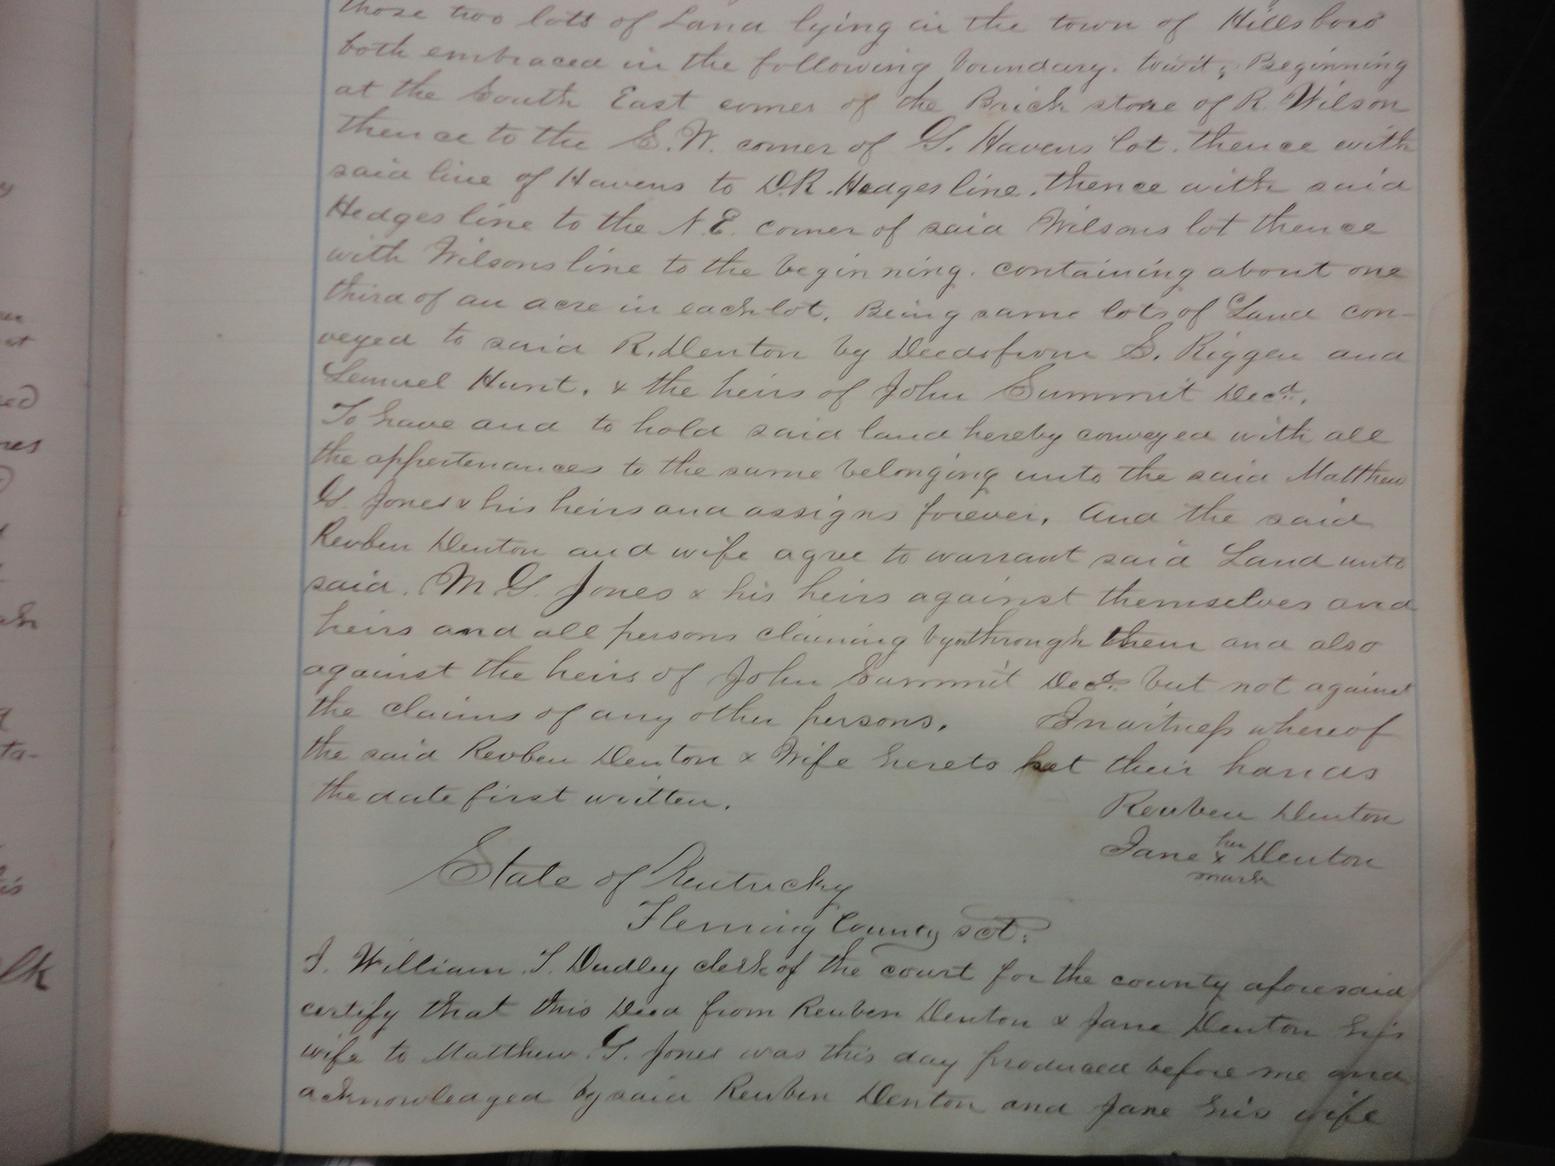 those two lots of Land lying in the town of Hillsboro
both embraced in the following boundary. towit; Beginning
at the South East corner of the Brick store of R. Wilson
thence to the S.W. corner of G. Havens lot. thence with
said line of Havens to D.R. Hedges line. thence with said
Hedges line to the N.E. corner of said Wilsons lot thence
with Wilsons line to the beginning. containing about one
third of an acre in each lot. Being same lots of Land con-
veyed to said R. Denton by Deeds from S. Riggen and
Lemuel Hunt. & the heirs of John Summit Decd.
To have and to hold said land hereby conveyed with all
the appertenances to the same belonging unto the said Matthew
G. Jones & his heirs and assigns forever. And the said
Reuben Denton and wife agree to warrant said Land unto
said. M. G. Jones & his heirs against themselves and
heirs and all persons claiming by or through them and also
against the heirs of John Summit Decd. but not against
the claims of any other persons. In witness whereof
the said Reuben Denton & Wife hereto set their hands
the date first written.
Reuben Denton
Jane her x mark Denton
State of Kentucky
Fleming County sct:
I. William T. Dudley clerk of the court for the county aforesaid
certify that this Deed from Reuben Denton & Jane Denton his
wife to Matthew G. Jones was this day produced before me and
acknowledged by said Reuben Denton and Jane his wife